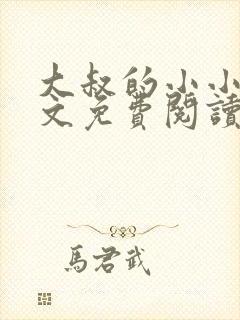 大叔的小小
文免費閱讀
馬君武